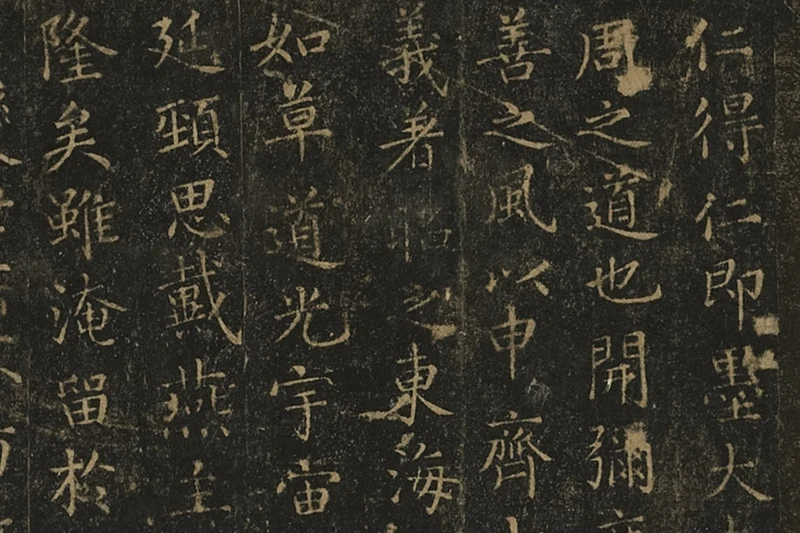 仁得仁即墨大
周之道也開彌
善之風以申齊
義著昭之東海
如草道光宇宙
延頸思戴燕主
隆矣雖淹留於